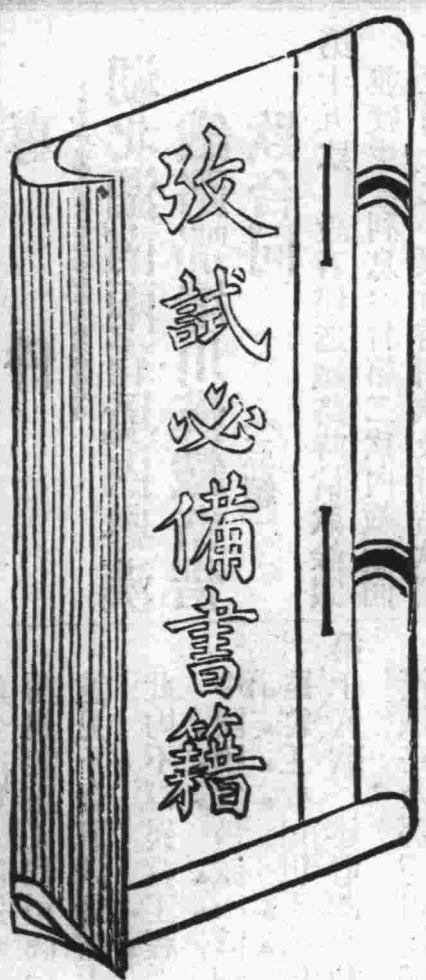 攷試必備書籍